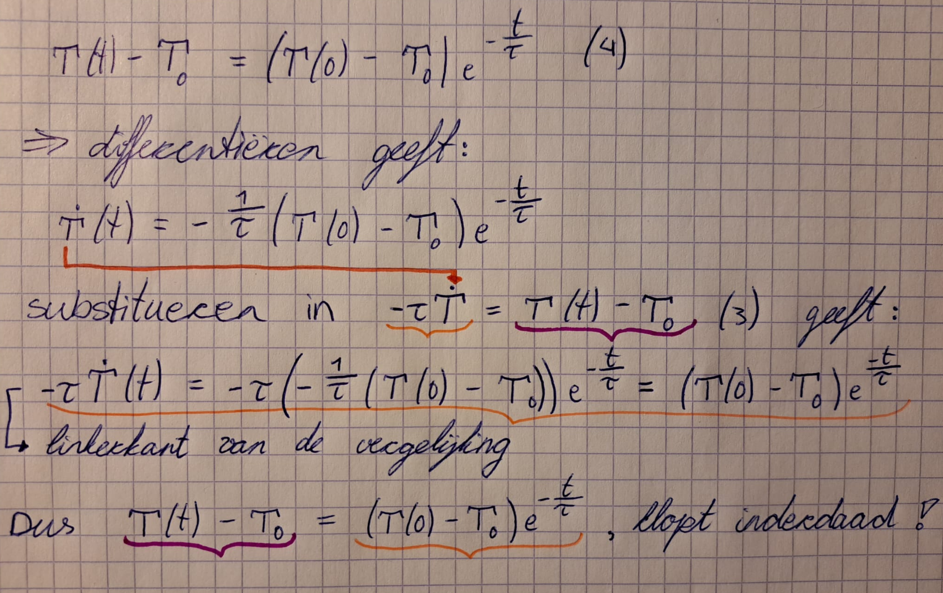 T(t) - T₀ = (T(0) - T₀) e^(-t/τ) (4)
⇒ differentiëren geeft:
Ṫ(t) = - 1/τ (T(0) - T₀) e^(-t/τ)
substitueren in -τṪ = T(t) - T₀ (3) geeft:
-τṪ(t) = -τ(-1/τ (T(0) - T₀)) e^(-t/τ) = (T(0) - T₀) e^(-t/τ)
↳ linkerkant van de vergelijking
Dus T(t) - T₀ = (T(0) - T₀) e^(-t/τ), klopt inderdaad!